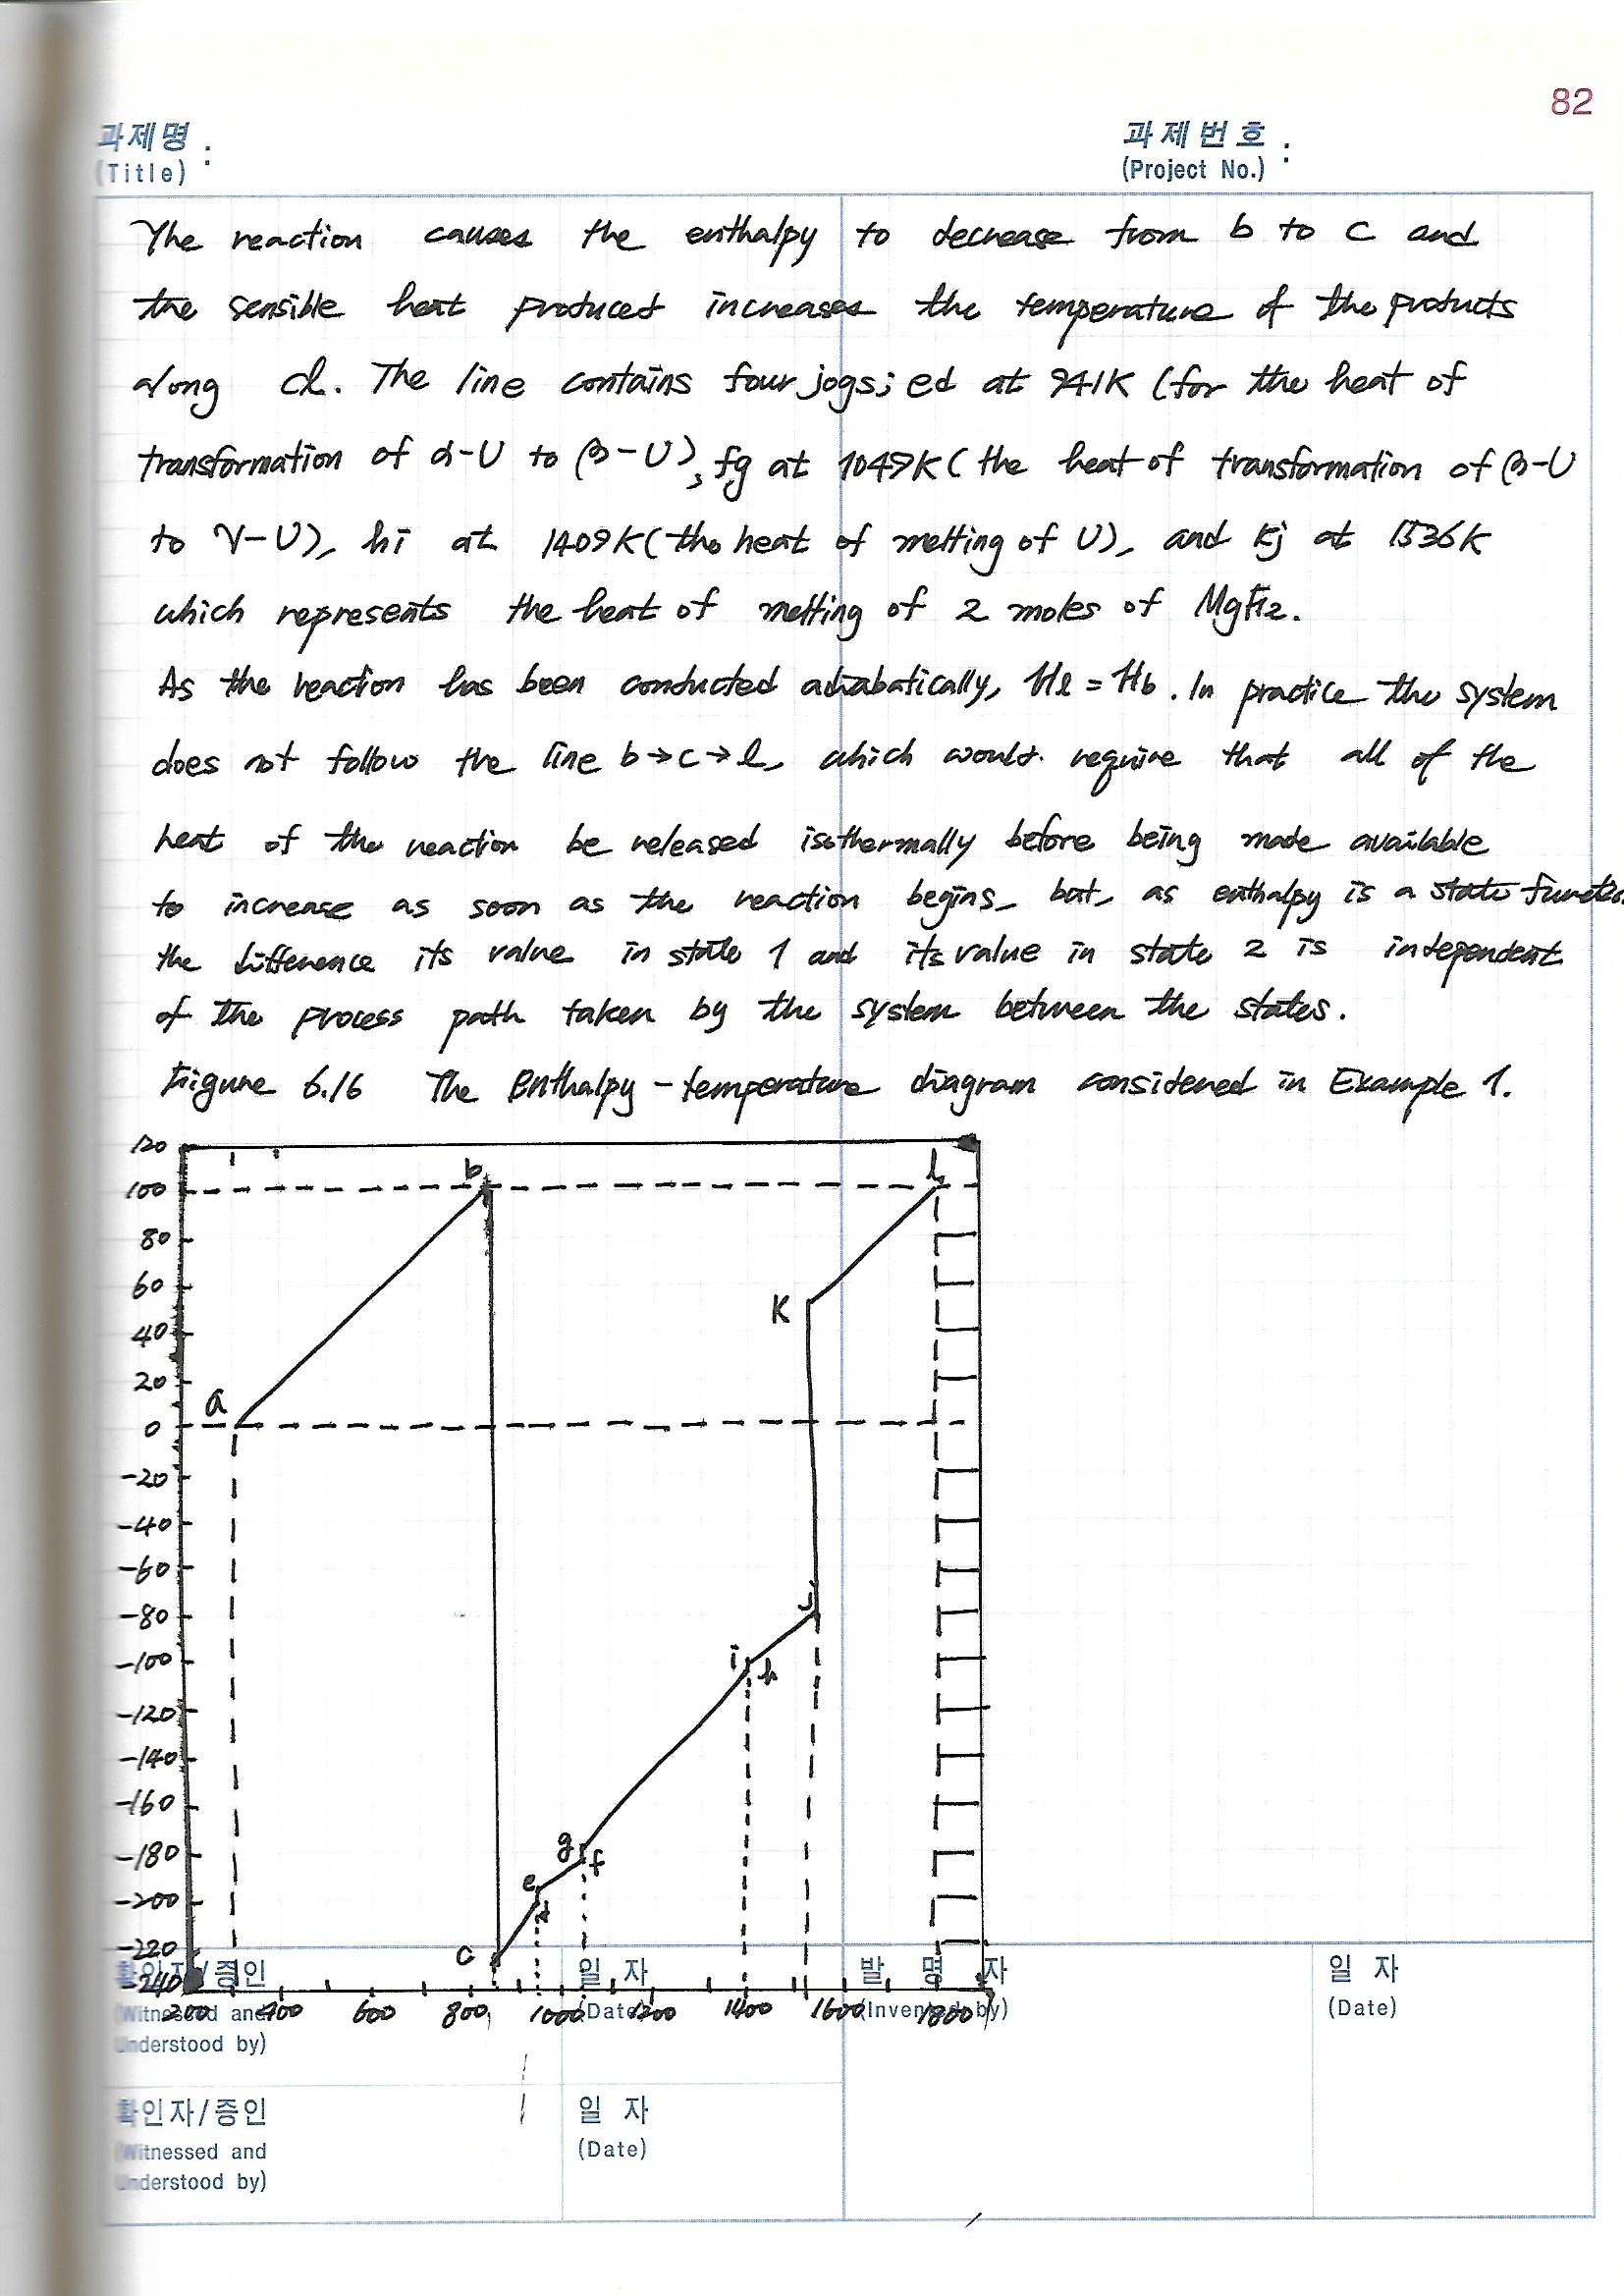 82
과제명 :
(Title)
과제번호 :
(Project No.)
The reaction causes the enthalpy to decrease from b to c and
the sensible heat produced increases the temperature of the products
along cl. The line contains four jogs; ed at 941K (for the heat of
transformation of α-U to β-U), fg at 1049K (the heat of transformation of β-U
to γ-U), hi at 1409K (the heat of melting of U), and kj at 1536K
which represents the heat of melting of 2 moles of MgF2.
As the reaction has been conducted adiabatically, Hl = Hb. In practice the system
does not follow the line b→c→l, which would require that all of the
heat of the reaction be released isothermally before being made available
to increase as soon as the reaction begins, but, as enthalpy is a state
the difference its value in state 1 and its value in state 2 is independent
of the process path taken by the system between the states.
Figure 6.16 The Enthalpy-temperature diagram considered in Example 1.
120
100
80
60
40
20
0
-20
-40
-60
-80
-100
-120
-140
-160
-180
-200
-220
-240
a
b
c
d
e
f
g
h
i
j
K
l
200 400 600 800 1000 1200 1400 1600 1800
확인자/증인
(Witnessed and
Understood by)
일 자
(Date)
발 명 자
(Invented by)
일 자
(Date)
확인자/증인
(Witnessed and
Understood by)
일 자
(Date)